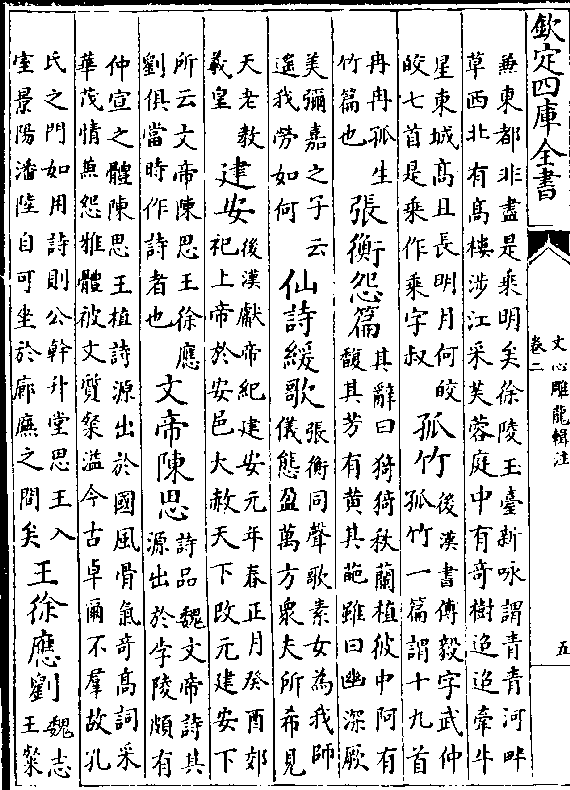 欽定四庫全書
文心雕龍輯注
卷二
五
兼東都非盡是乘明矣徐陵玉臺新咏謂青青河畔
草西北有高樓涉江采芙蓉庭中有奇樹迢迢牽牛
星東城高且長明月何皎
皎七首是乘作乘字叔
孤竹
後漢書傅毅字武仲
孤竹一篇謂十九首
冉冉孤生
竹篇也
張衡怨篇
其辭曰猗猗秋蘭植彼中阿有
馥其芳有黃其葩雖曰幽深厥
美彌嘉之子云
遥我勞如何
仙詩緩歌
張衡同聲歌素女為我師
儀態盈萬方衆夫所希見
天老教
羲皇
建安
後漢獻帝紀建安元年春正月癸酉郊
祀上帝於安邑大赦天下改元建安下
所云文帝陳思王徐應
劉俱當時作詩者也
文帝陳思
詩品魏文帝詩其
源出於李陵頗有
仲宣之體陳思王植詩源出於國風骨氣竒高詞采
華茂情蕪怨雅體被文質粲溢今古卓爾不羣故孔
氏之門如用詩則公幹升堂思王入
室景陽潘陸自可坐於廊廡之間矣
王徐應劉
魏志
王粲